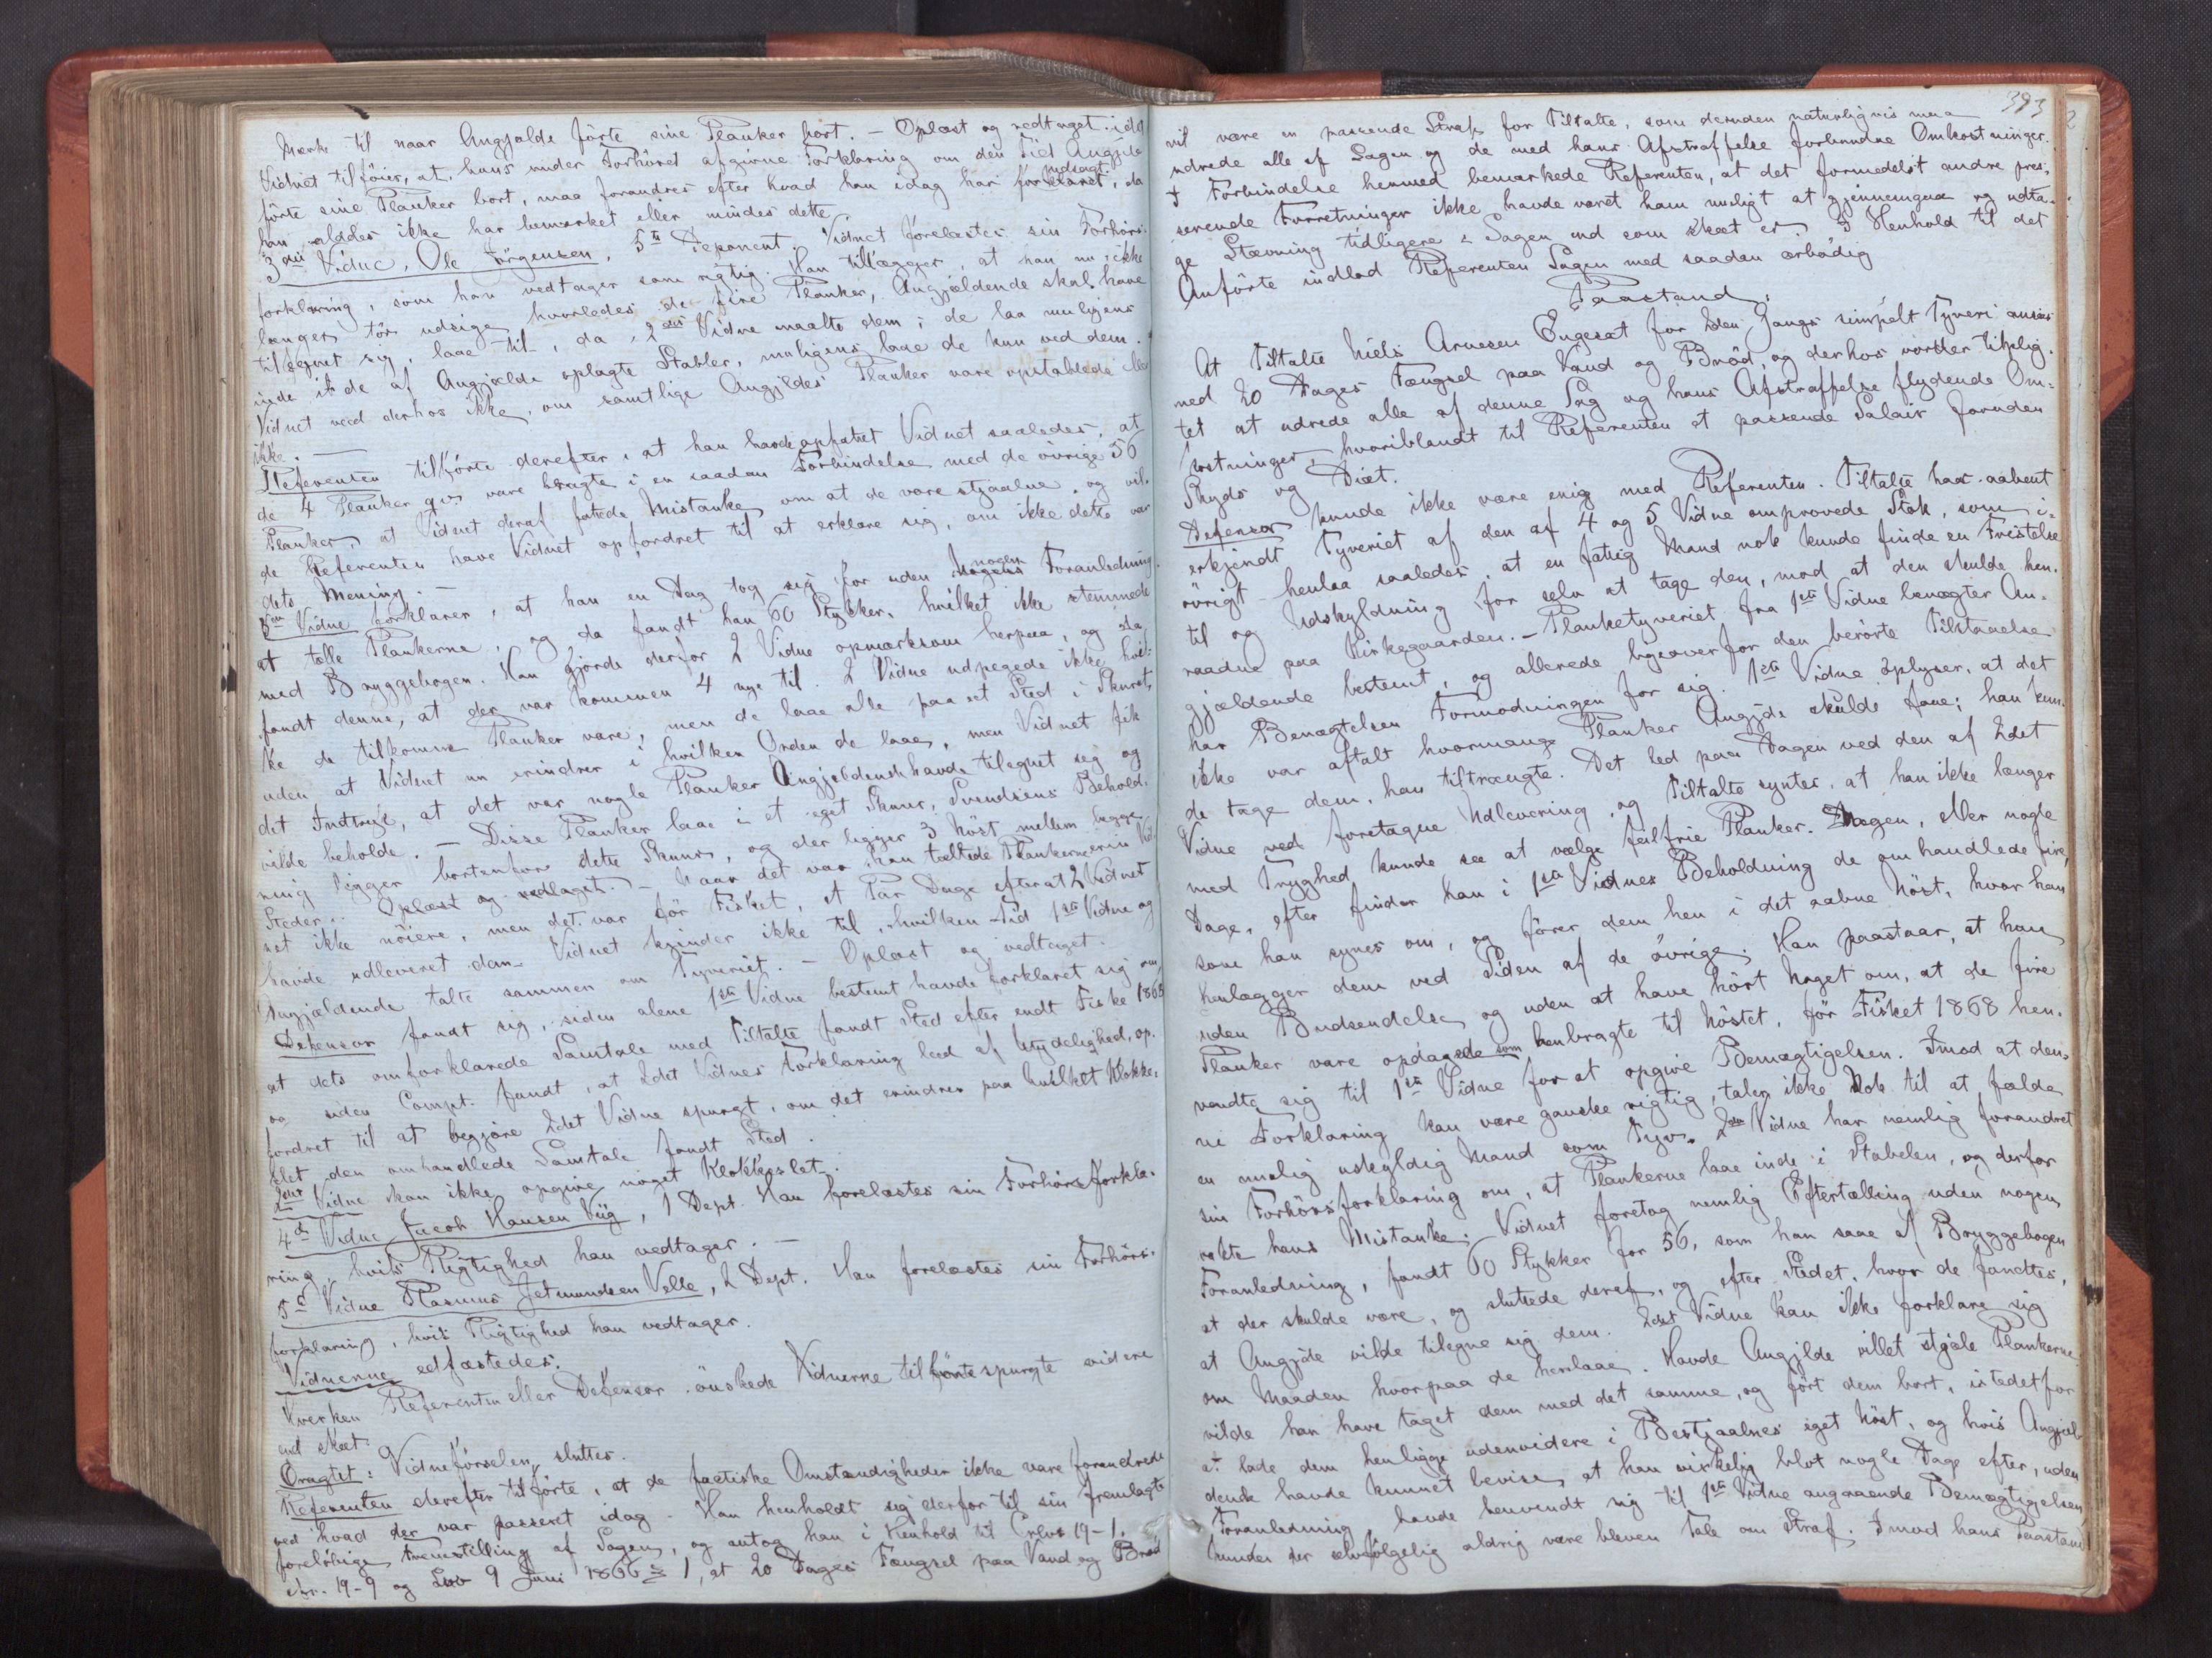 Mærke til naar Angjældt förte sine Planker bort. – Oplæst og vedtaget: idet
Vidnet tilföier, at hans under Forhöret afgivne Forklaring om den Tid Angjælde
förte sine Planker bort, maa forandres efter hvad han idag har forklaret udsagt, da
han aldeles ikke har bemærket eller mindes dette
3die Vidne, Ole Jörgensen, 5te Deponent. Vidnet forelæstes sin Forhörs-
forklaring, som han vedtager som rigtig. Han tillægger, at han nu ikke
længer tör udsige hvorledes de fire Planker, Angjældende skal have
tilegnet sig, laae til, da 2det Vidne maalte dem; de laa muligens
inde i de af Angjælde oplagte Stabler, muligens laae de kun ved dem.
Vidnet veed derhos ikke, om samtlige Angjældes Planker vare opstablede eller
ikke. –
Referenten tilförte derefter, at han havde opfattet Vidnet saaledes, at
de 4 Planker qvs vare bragte i en saadan Forbindelse med de övrige 56
Planker, at Vidnet deraf fattede Mistanke om at de vare stjaalne, og vil-
de Referenten have Vidnet opfordret til at erklære sig, om ikke dette var
dets Mening. –
5te Vidne forklarer, at han en Dag tog sig for uden nogen Foranledning
at tælle Plankerne, og da fandt han 60 Stykker, hvilket ikke stemmede
med Bryggebogen. Han gjorde derfor 2 Vidne opmærksom herpaa, og da
fandt denne, at der var kommen 4 nye til. 2 Vidne udpegede ikke hvil-
ke de tilkomne Planker vare, men de laae alle paa et Sted i Skuret,
uden at Vidnet nu erindrer i hvilken Orden de laae, men Vidnet fik
det Indtryk, at det var nogle Planker Angjældende havde tilegnet sig og
vilde beholde. – Disse Planker laae i et eget Skuur, Svendsens Behold-
ning ligger bortenfor dette Skuur, og der ligger 3 Höst mellem begge
Steder. Oplæst og vedtaget. – Naar det var han tællede Plankerne erin Vid-
net ikke nöiere, men det var för Fisket, et Par Dage efterat 2 Vidnet
havde udleveret dem. Vidnet kjender ikke til, hvilken Tid 1ste Vidne og
Angjældende talte sammen om Tyveriet. – Oplæst og vedtaget.
Defensor fandt sig, siden alene 1ste Vidne bestemt havde forklaret sig om,
at dets omforklarede Samtale med Tiltalte fandt Sted efter endt Fiske 1868
og siden Compt. fandt, at 2det Vidnes Forklaring led af Utydelighed, op-
fordret til at begjære 2det Vidne spurgt, om det erindrer paa hvilket Klokke-
slet den omhandlede Samtale fandt Sted.
2det Vidne kan ikke opgive noget Klokkeslet.
4de Vidne Jacob Hansen Viig, 1 Dept. Han forelæstes sin Forhörsforkla-
ring, hvis Rigtighed han vedtager. –
5te Vidne Rasmus Jetmundsen Velle, 2 Dept. Han forelæstes sin Forhörs-
forklaring, hvis Rigtighed han vedtager.
Vidnerne edfæstedes.
Hverken Referenten eller Defensor önskede Vidnerne tilförte spurgte videre
end skeet.
Eragtet: Vidneförselen sluttes.
Referenten derefter tilförte, at de factiske Omstændigheder ikke vare forandrede
ved hvad der var passeret idag. Han henholdt sig derfor til sin fremlagte
forelöbige Fremstilling af Sagen, og antog han i Henhold til Crlvs 19–1.
cfr. 19–9 og Lov 9 Juni 1866 § 1, at 20 Dages Fængsel paa Vand og Bröd
393
vil være en passende Straf for Tiltalte, som desuden naturligvis maa
udrede alle af Sagen og de med hans Afstraffelse forbundne Omkostninger.
I Forbindelse hermed bemærkede Referenten, at det formedelst andre pres-
serende Forretninger ikke havde været ham muligt at gjennemgaa og udta-
ge Stævning tidligere i Sagen end som skeet er. I Henhold til det
Anförte indlod Referenten Sagen med saadan ærbödig
Paastand:
At Tiltalte Niels Arnesen Engeset for 2den Gangs simpelt Tyveri ansees
med 20 Dages Fængsel paa Vand og Bröd, og derhos vorder tilplig-
tet at udrede alle af denne Sag og hans Afstraffelse flydende Om-
kostninger, hvoriblandt til Referenten et passende Salair foruden
Skyds og Diæt.
Defensor kunde ikke være enig med Referenten. Tiltalte har aabent
erkjendt Tyveriet af den af 4 og 5 Vidne omprovede Stok, som i-
övrigt henlaa saaledes, at en fattig Mand nok kunde finde en Fristelse
til og Undskyldning for selv at tage den, mod at den skulde hen-
raadne paa Kirkegaarden. – Planketyveriet fra 1ste Vidne benægter An-
gjældende bestemt, og allerede ligeover for den berörte Tilstaaelse
har Benægtelsen Formodningen for sig. 1ste Vidne oplyser, at det
ikke var aftalt hvormange Planker Angjde skulde have; han kun-
de tage dem, han tiltrængte. Det led paa Dagen ved den af 2det
Vidne ved foretagne Udlevering, og Tiltalte syntes, at han ikke længer
med Tryghed kunde see at vælge feilfrie Planker. Dagen, eller nogle
Dage, efter finder han i 1ste Vidnes Beholdning de omhandlede fire,
som han synes om, og förer dem hen i det aabne Höst, hvor han
henlægger dem ved Siden af de övrige. Han paastaar, at han
uden Budsendelse og uden at have hört Noget om, at de fire
Planker vare opdagede som henbragte til Höstet, för Fisket 1868 hen-
vendte sig til 1ste Vidne for at opgive Bemægtigelsen. Imod at den-
ne Forklaring kan være ganske rigtig, taler ikke Nok til at fælde
en mulig uskyldig Mand som Tyv. 2det Vidne har nemlig forandret
sin Forhörsforklaring om, at Plankerne laae inde i Stabelen, og derfor
vakte hans Mistanke; Vidnet foretog nemlig Eftertælling uden nogen
Foranledning, fandt 60 Stykker for 56, som han saae af Bryggebogen
at der skulde være, og sluttede deraf, og efter Stedet, hvor de fandtes,
at Angjde vilde tilegne sig dem. 2det Vidne kan ikke forklare sig
om Maaden hvorpaa de henlaae. Havde Angjælde villet stjæle Plankerne
vilde han have taget dem med det samme, og fört dem bort, istedetfor
at lade dem henligge udenvidere i Bestjaalnes eget Höst, og hvis Angjæl-
dende havde kunnet bevise, at han virkelig blot nogle Dage efter, uden
Foranledning, havde henvendt sig til 1ste Vidne angaaende Bemægtigelsen,
kunde der selvfölgelig aldrig være bleven Tale om Straf. Imod hans Paastand